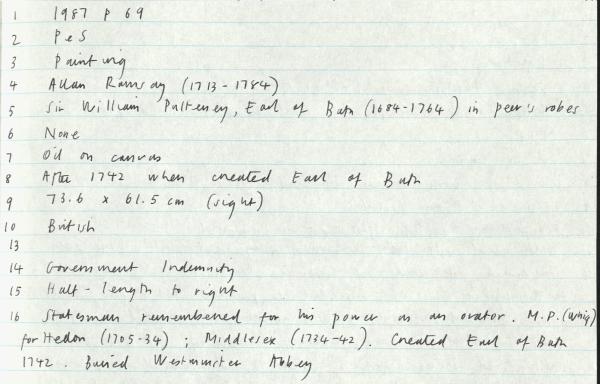 1 1987 P 69
2 PeS
3 Painting
4 Allan Ramsay (1713-1784)
5 Sir William Pulteney, Earl of Bath (1684-1764) in peer's robes
6 None
7 Oil on canvas
8 After 1742 when created Earl of Bath
9 73.6 x 61.5 cm (sight)
10 British
13
14 Government Indemnity
15 Half-length to right
16 Statesman remembered for his power as an orator. M.P. (Whig)
for Hedon (1705-34) ; Middlesex (1734-42). Created Earl of Bath
1742. Buried Westminster Abbey